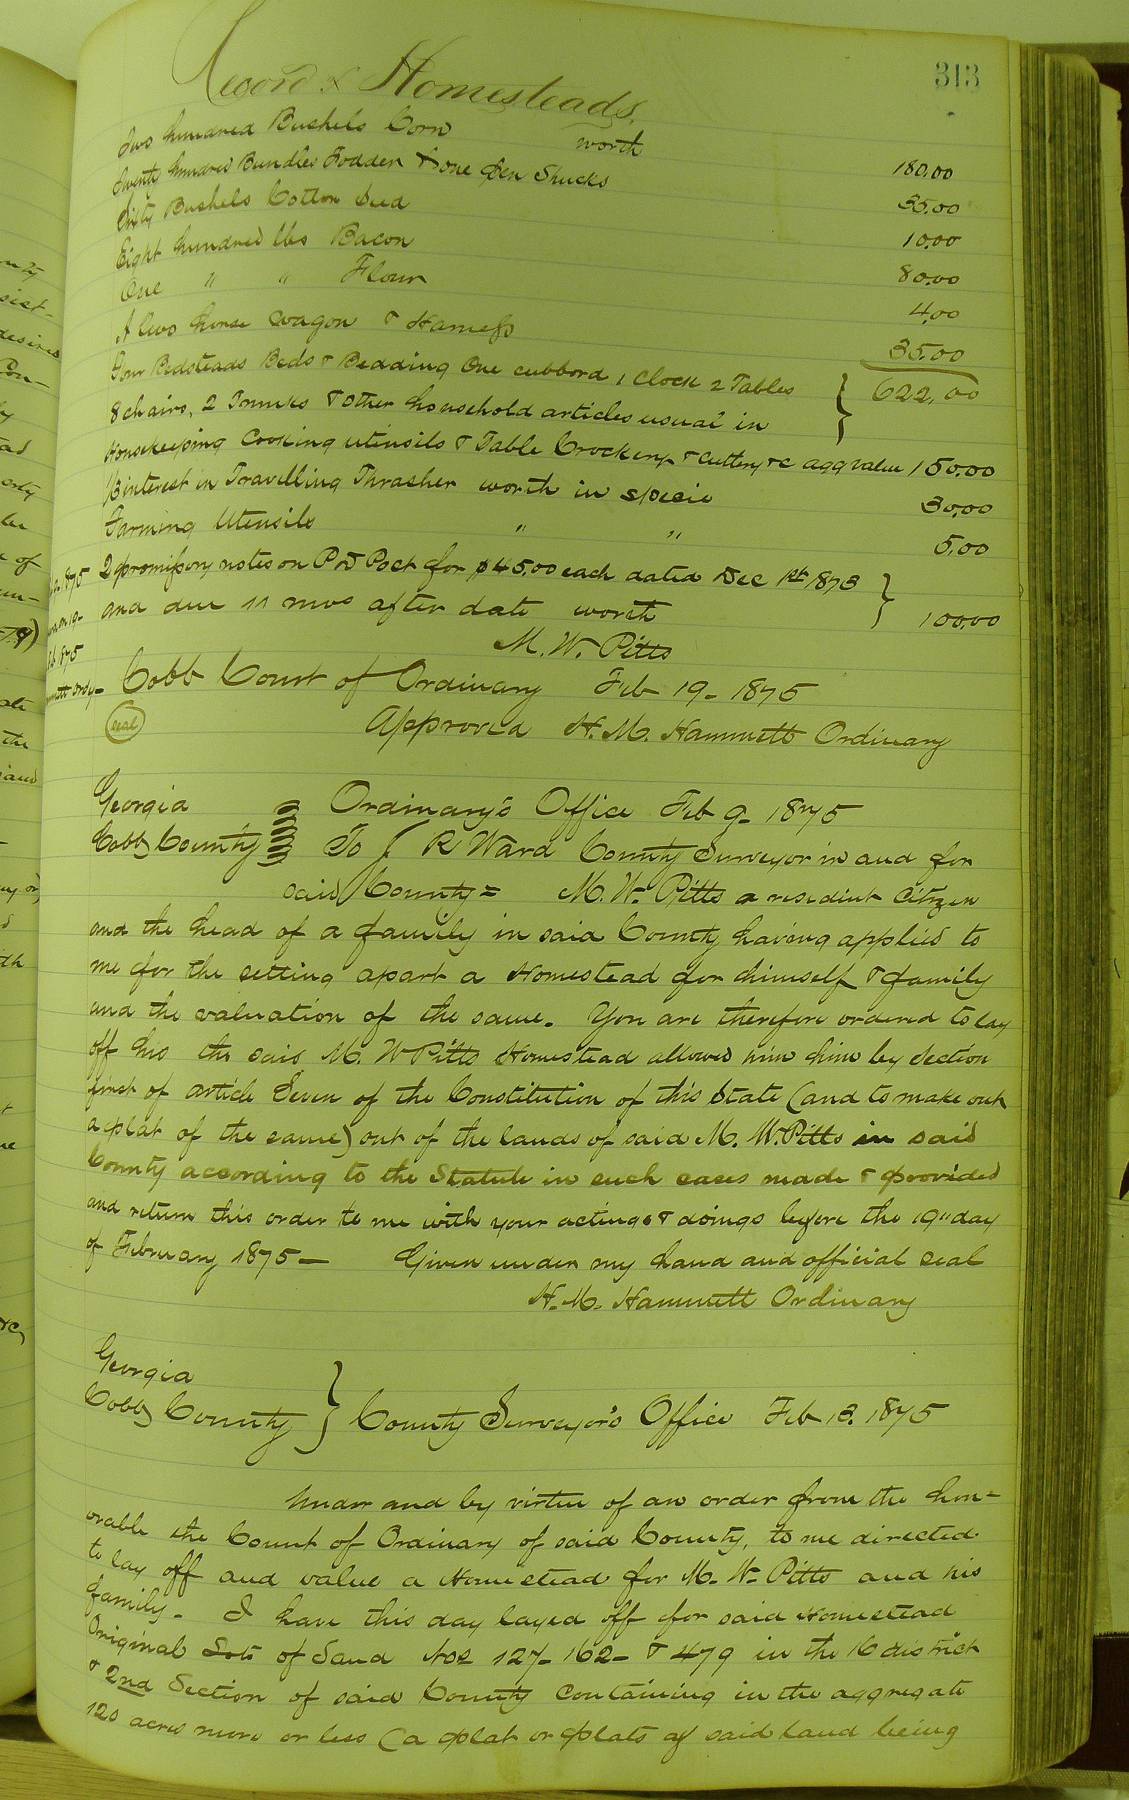 313
Record of Homesteads.
Two hundred Bushels Corn worth 180.00
Twenty hundred Bundles Fodder & one Pen Shucks 35.00
Sixty Bushels Cotton Seed 10.00
Eight hundred lbs Bacon 80.00
One " " Flour 4.00
A two horse wagon & Harness 35.00
622.00
Four Bedsteads Beds & Bedding One cubbord 1 Clock 2 Tables
8 chairs, 2 Trunks & other household articles usual in
Housekeeping Cooking utensils & Table Crockery & cuttery &c agg value 150.00
1/3 interest in Travelling Thrasher worth in specie 30.00
Farming Utensils " " 5.00
2 promissory notes on P D Poet for $45.00 each dated Dec 1st 1873
and due 11 mos after date worth 100.00
M. W. Pitts
Cobb Court of Ordinary Feb 19- 1875
seal Approved H. M. Hammett Ordinary
Georgia Ordinary's Office Feb 9- 1875
Cobb County To J R Ward County Surveyor in and for
said County = M. W. Pitts a resedent Citizen
and the head of a family in said County having applied to
me for the setting apart a Homestead for himself & family
and the valuation of the same. You are therefore ordered to lay
off his the said M. W Pitts Homestead allowed him him by Section
first of article Seven of the Constitution of this State (and to make out
a plat of the same) out of the lands of said M. W. Pitts in said
County according to the Statute in such cases made & provided
and return this order to me with your actings & doings before the 19" day
of February 1875 — Given under my hand and official seal
H. M. Hammett Ordinary
Georgia
Cobb County } County Surveyor's Office Feb 13. 1875
Under and by virtue of an order from the hon-
orable the Court of Ordinary of said County, to me directed
to lay off and value a Homestead for M. W. Pitts and his
family- I have this day layed off for said Homestead
Original Lots of Land Nos 127- 162- & 479 in the 16 district
& 2nd Section of said County Containing in the aggregate
120 acres more or less (a plat or plats of said land being